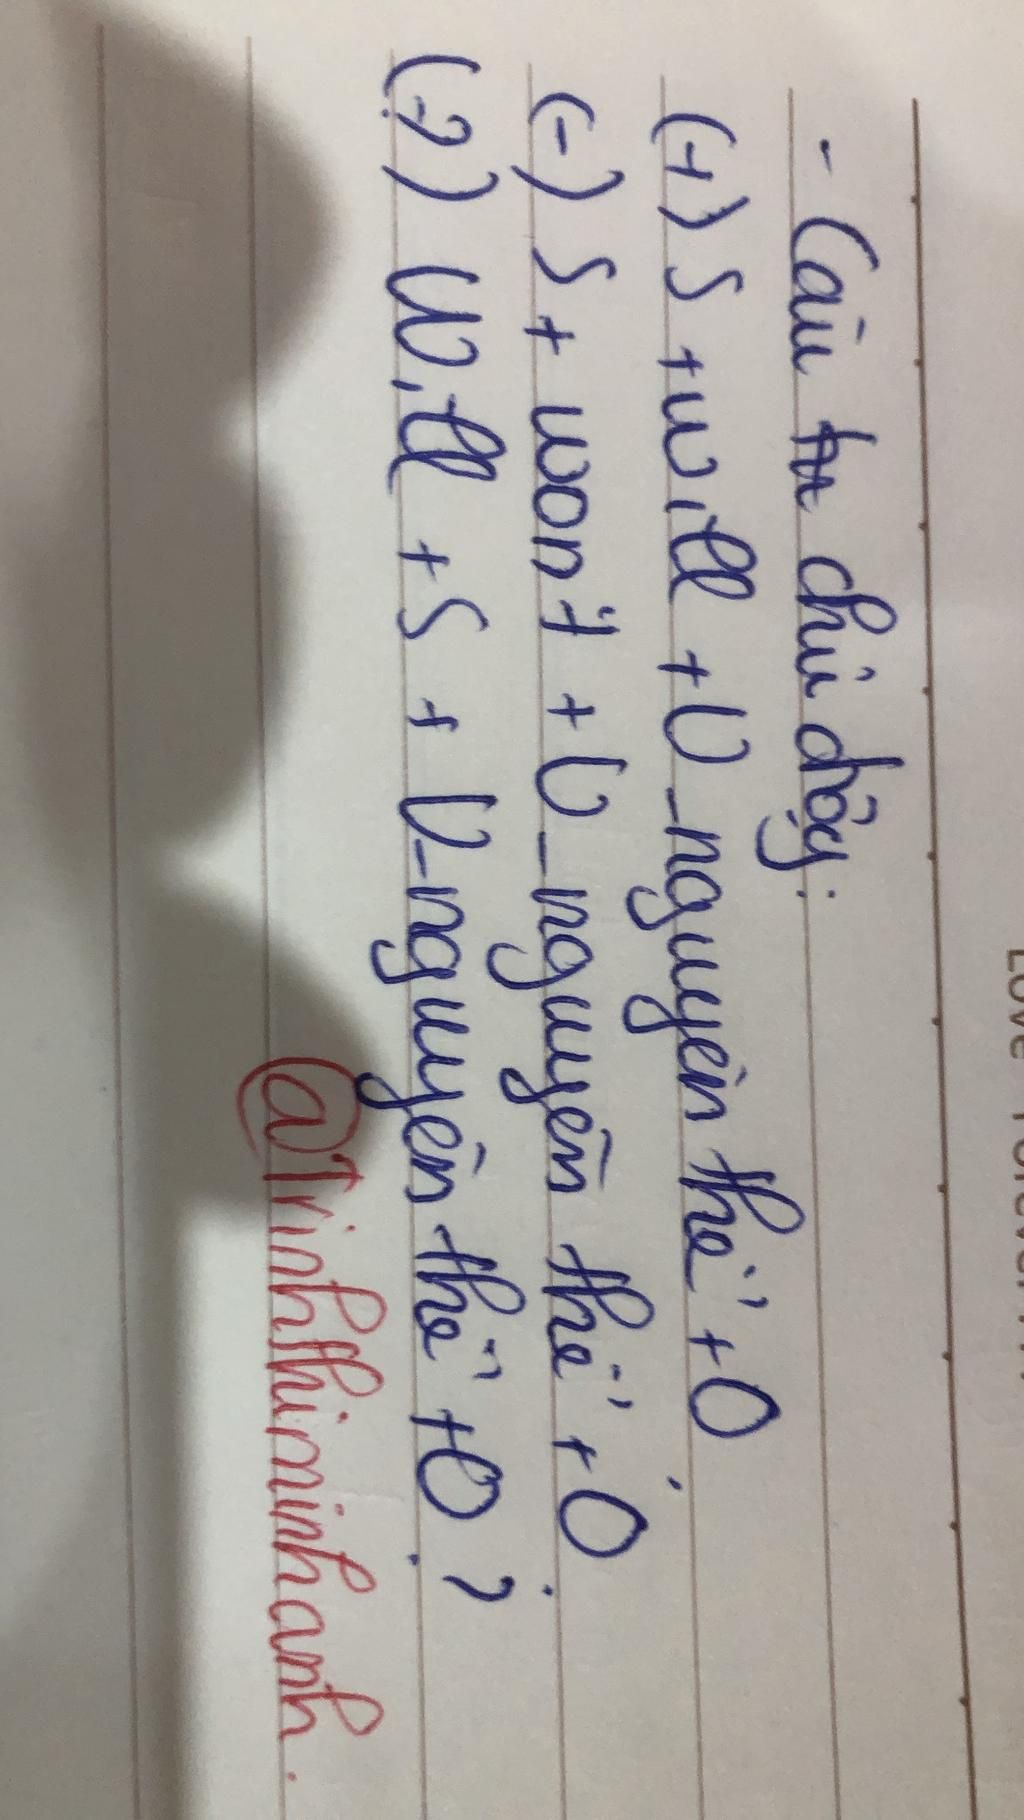 - Câu chủ động:
(+) S + will + V_nguyên thể + O
(-) S + won't + V_nguyên thể + O.
(?) Will + S + V_nguyên thể + O ?
@Trinhthiminhanh.